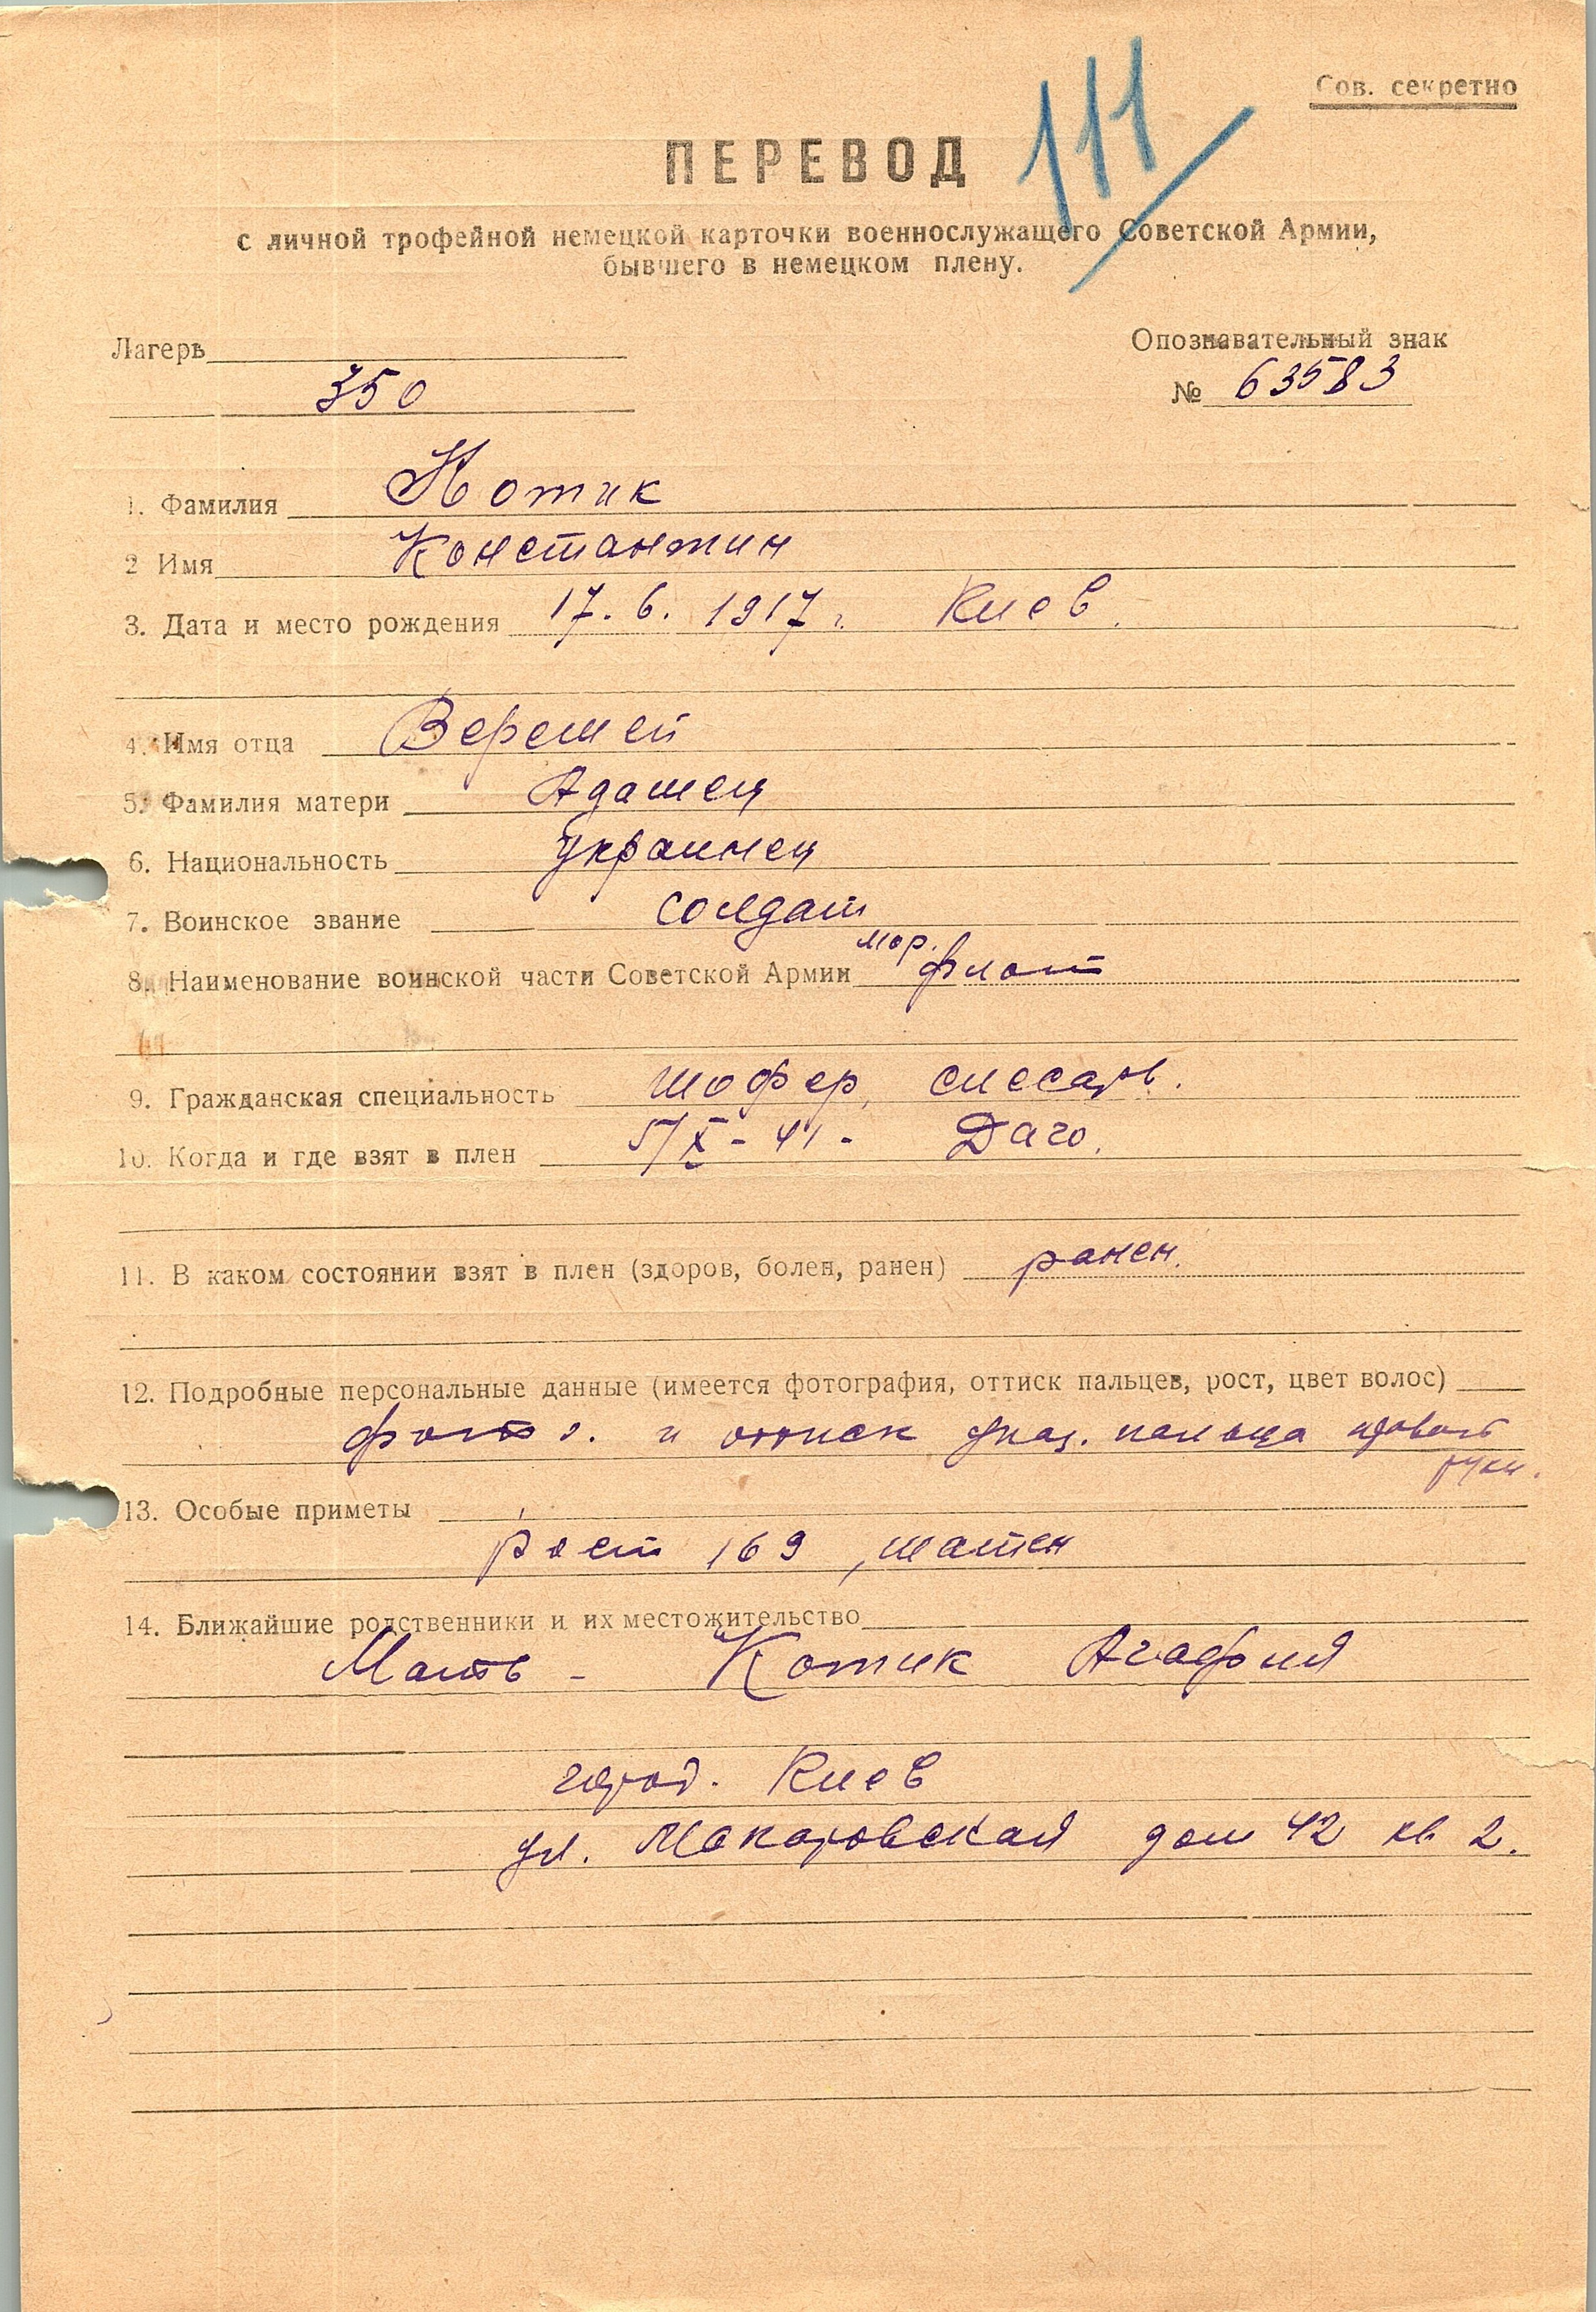 Сов. секретно
111
ПЕРЕВОД
с личной трофейной немецкой карточки военнослужащего Советской Армии,
бывшего в немецком плену.
Лагерь
Опознавательный знак
350
№ 63583
1. Фамилия Котик
2 Имя Константин
3. Дата и место рождения 17. 6. 1917 г. Киев.
4. Имя отца Веремей
5. Фамилия матери Адамец
6. Национальность украинец
7. Воинское звание солдат
8. Наименование воинской части Советской Армии мор. флот
9. Гражданская специальность шофер, слесарь.
10. Когда и где взят в плен 5/X - 41 - Даго.
11. В каком состоянии взят в плен (здоров, болен, ранен) ранен.
12. Подробные персональные данные (имеется фотография, оттиск пальцев, рост, цвет волос)
фото г. и оттиск указ. пальца правой
руки.
13. Особые приметы
рост 169, шатен
14. Ближайшие родственники и их местожительство
Мать - Котик Агафия
город. Киев
ул. Макаровская дом 42 кв 2.